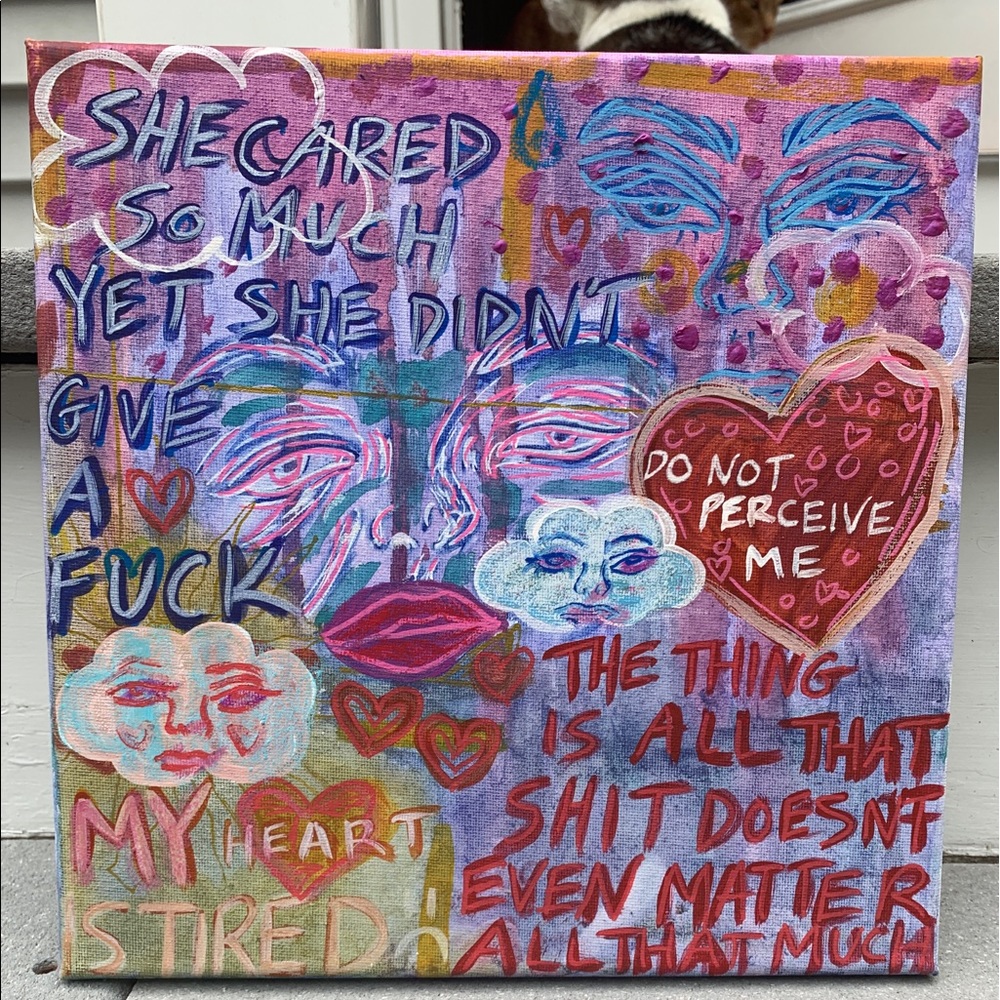 SHE CARED
SO MUCH
YET SHE DIDN'T
GIVE
A
FUCK
DO NOT
PERCEIVE
ME
THE THING
IS ALL THAT
SHIT DOESN'T
EVEN MATTER
ALL THAT MUCH
MY HEART
IS TIRED